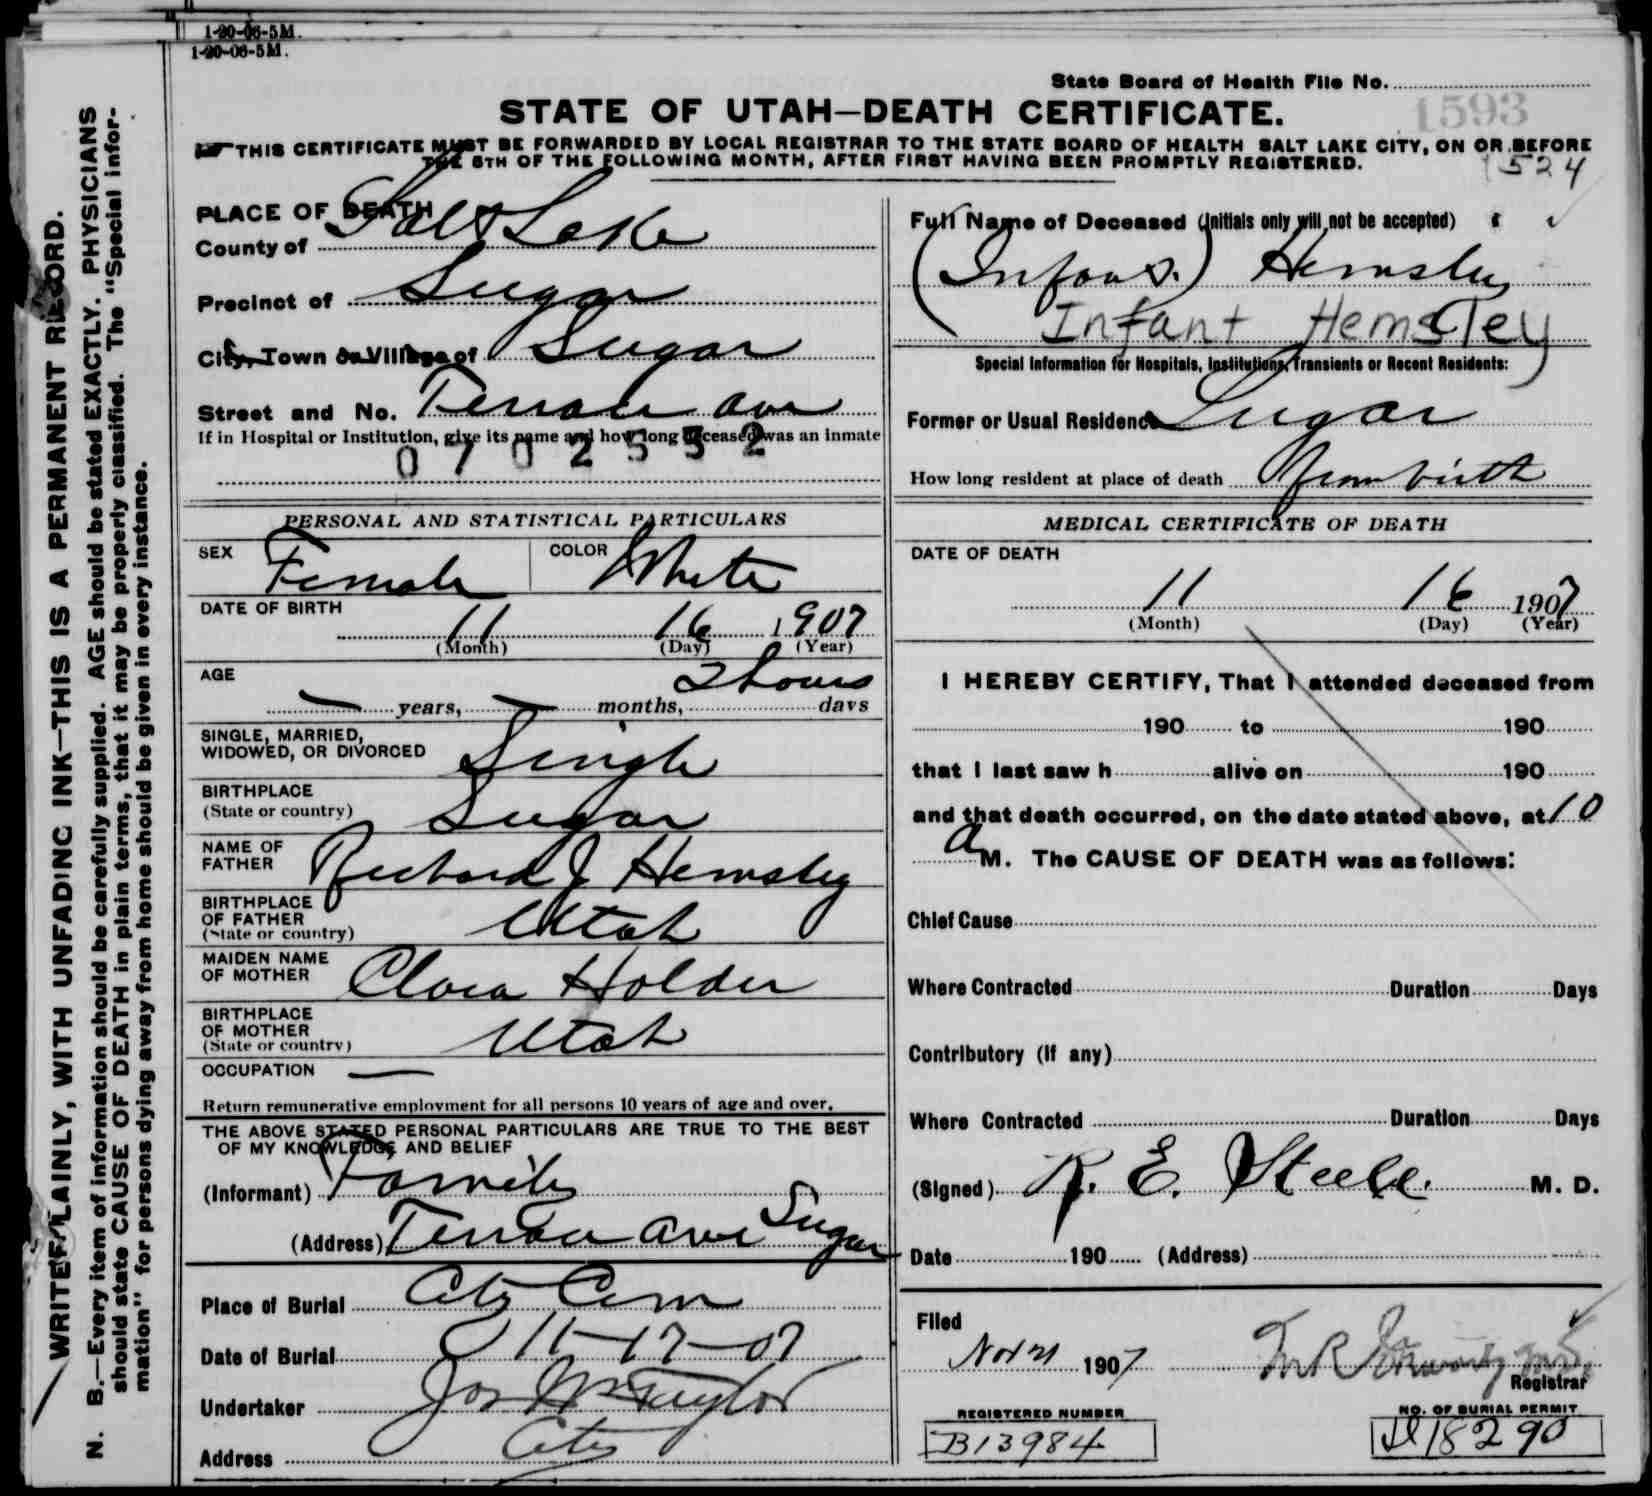 1-20-06-5M.
1-20-06-5M.
State Board of Health File No.
1593
STATE OF UTAH—DEATH CERTIFICATE.
THIS CERTIFICATE MUST BE FORWARDED BY LOCAL REGISTRAR TO THE STATE BOARD OF HEALTH SALT LAKE CITY, ON OR BEFORE
THE 5TH OF THE FOLLOWING MONTH, AFTER FIRST HAVING BEEN PROMPTLY REGISTERED.
1524
WRITE PLAINLY, WITH UNFADING INK—THIS IS A PERMANENT RECORD.
N. B.—Every item of information should be carefully supplied. AGE should be stated EXACTLY. PHYSICIANS
should state CAUSE OF DEATH in plain terms, that it may be properly classified. The "Special Infor-
mation" for persons dying away from home should be given in every instance.
PLACE OF DEATH
County of Salt Lake
Precinct of Sugar
City, Town or Village of Sugar
Street and No. Terrace ave
If in Hospital or Institution, give its name and how long deceased was an inmate
0702552
PERSONAL AND STATISTICAL PARTICULARS
SEX Female COLOR White
DATE OF BIRTH
11 16 1907
(Month) (Day) (Year)
AGE 2 hours
— years, — months, days
SINGLE, MARRIED,
WIDOWED, OR DIVORCED Single
BIRTHPLACE
(State or country) Sugar
NAME OF
FATHER Richard J Hemsley
BIRTHPLACE
OF FATHER
(State or country) Utah
MAIDEN NAME
OF MOTHER Clara Holder
BIRTHPLACE
OF MOTHER
(State or country) Utah
OCCUPATION —
Return remunerative employment for all persons 10 years of age and over.
THE ABOVE STATED PERSONAL PARTICULARS ARE TRUE TO THE BEST
OF MY KNOWLEDGE AND BELIEF
(Informant) Family
(Address) Terrace ave Sugar
Place of Burial City Cem
Date of Burial 11-17-07
Undertaker Jos Wm Taylor
Address City
Full Name of Deceased (Initials only will not be accepted)
(Infant) Hemsley
Infant Hemsley
Special Information for Hospitals, Institutions, Transients or Recent Residents:
Former or Usual Residence Sugar
How long resident at place of death from birth
MEDICAL CERTIFICATE OF DEATH
DATE OF DEATH
11 16 1907
(Month) (Day) (Year)
I HEREBY CERTIFY, That I attended deceased from
190 to 190
that I last saw h alive on 190
and that death occurred, on the date stated above, at 10
a M. The CAUSE OF DEATH was as follows:
Chief Cause
Where Contracted Duration Days
Contributory (if any)
Where Contracted Duration Days
(Signed) R. E. Steele. M. D.
Date 190 (Address)
Filed
Nov 21 1907
Registrar
REGISTERED NUMBER
B13984
NO. OF BURIAL PERMIT
18290